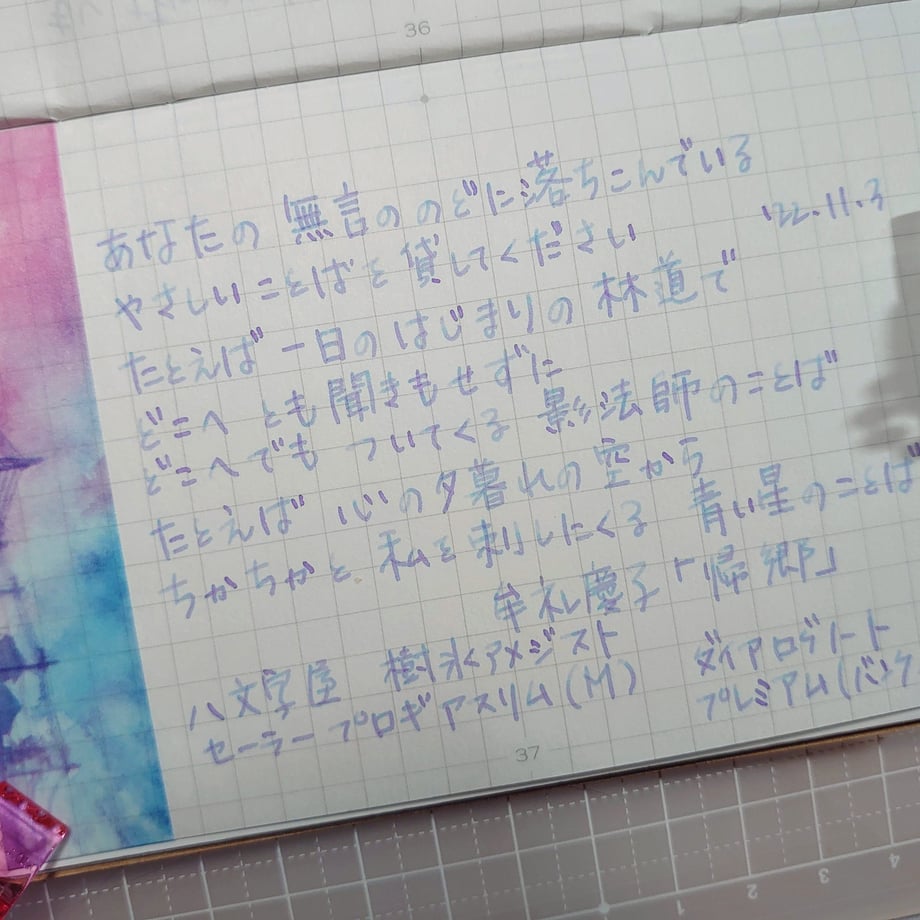 36
あなたの 無言ののどに落ちこんでいる
'22.11.3
やさしいことばを貸してください
たとえば 一日のはじまりの 林道で
どこへ とも聞きもせずに
どこへでも ついてくる 影法師のことば
たとえば 心の夕暮れの空から
ちかちかと 私を刺しにくる 青い星のことば
牟礼慶子「帰郷」
八文字屋 樹氷アメジスト
セーラー プロギアスリム(M)
ダイアログノート
プレミアム(バンク
37
1
2
3
4